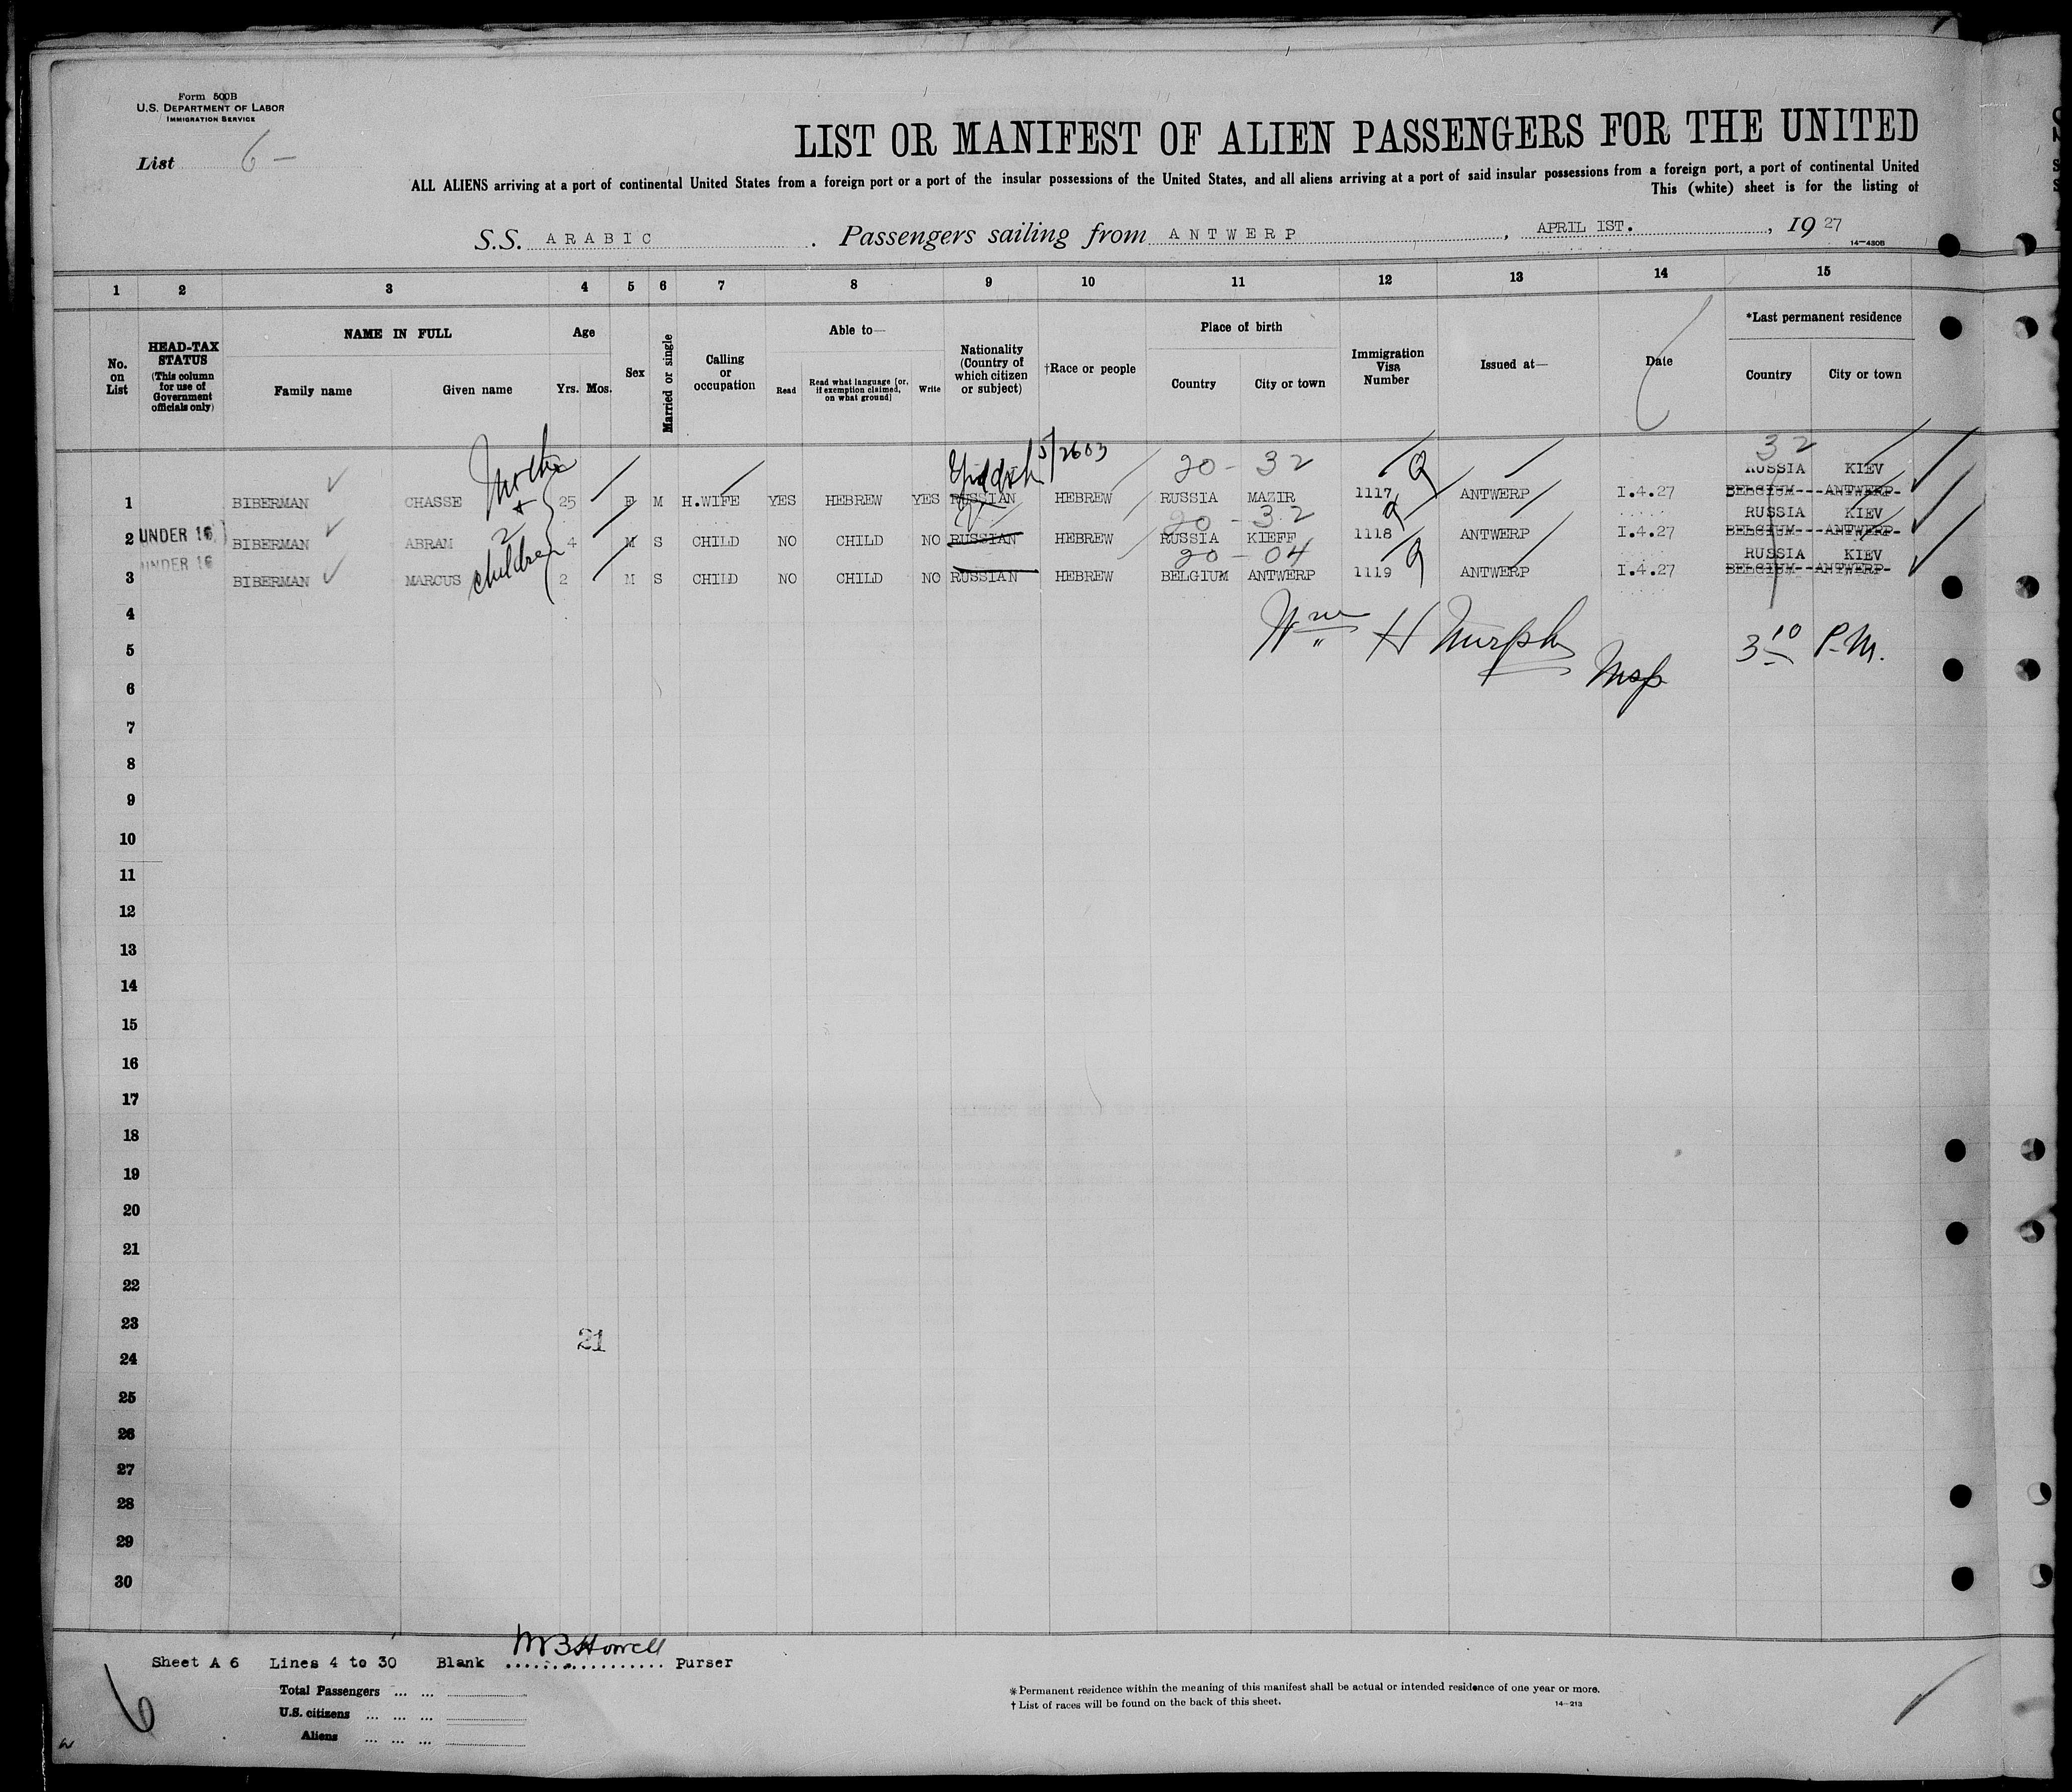 Form 500B
U.S. DEPARTMENT OF LABOR
IMMIGRATION SERVICE
List 6 -
LIST OR MANIFEST OF ALIEN PASSENGERS FOR THE UNITED
ALL ALIENS arriving at a port of continental United States from a foreign port or a port of the insular possessions of the United States, and all aliens arriving at a port of said insular possessions from a foreign port, a port of continental United
This (white) sheet is for the listing of
S.S. ARABIC . Passengers sailing from ANTWERP , APRIL 1ST. , 19 27
14-430B
1 2 3 4 5 6 7 8 9 10 11 12 13 14 15
No. on List
HEAD-TAX STATUS (This column for use of Government officials only)
NAME IN FULL
Family name Given name
Age
Yrs. Mos.
Sex
Married or single
Calling or occupation
Able to—
Read
Read what language [or, if exemption claimed, on what ground]
Write
Nationality (Country of which citizen or subject)
†Race or people
Place of birth
Country City or town
Immigration Visa Number
Issued at—
Date
*Last permanent residence
Country City or town
Mother + 2 children
Yiddish 5/2603 20 - 32 32
RUSSIA KIEV
1 BIBERMAN CHASSE 25 F M H.WIFE YES HEBREW YES RUSSIAN HEBREW RUSSIA MAZIR 1117 ANTWERP I.4.27 BELGIUM---ANTWERP-
20 - 32 RUSSIA KIEV
UNDER 16
2 BIBERMAN ABRAM 4 M S CHILD NO CHILD NO RUSSIAN HEBREW RUSSIA KIEFF 1118 ANTWERP I.4.27 BELGIUM---ANTWERP-
20 - 04 RUSSIA KIEV
UNDER 16
3 BIBERMAN MARCUS 2 M S CHILD NO CHILD NO RUSSIAN HEBREW BELGIUM ANTWERP 1119 ANTWERP I.4.27 BELGIUM--ANTWERP-
4
Wm H Murphy 3 10 P.M.
5
6
7
8
9
10
11
12
13
14
15
16
17
18
19
20
21
22
23
21
24
25
26
27
28
29
30
Sheet A 6 Lines 4 to 30 Blank MBHowell Purser
Total Passengers ... ...
U.S. citizens ... ... ...
Aliens ... ... ...
6
* Permanent residence within the meaning of this manifest shall be actual or intended residence of one year or more.
† List of races will be found on the back of this sheet. 14-213